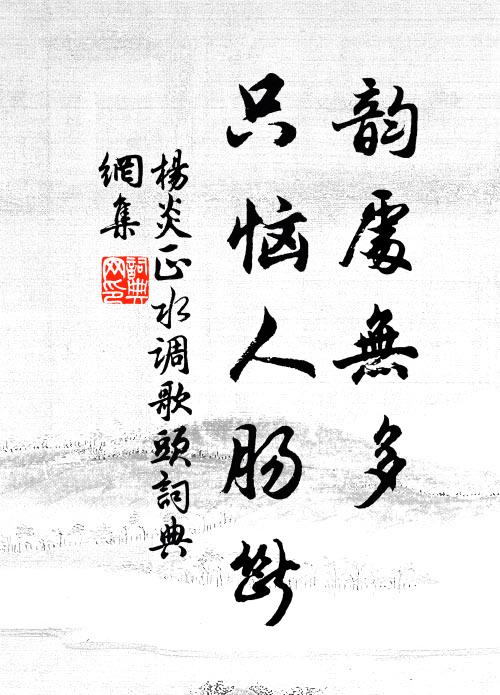 韵處無多
只恼人肠斷
楊炎正水调歌頭詞典
網集
詞典
网印